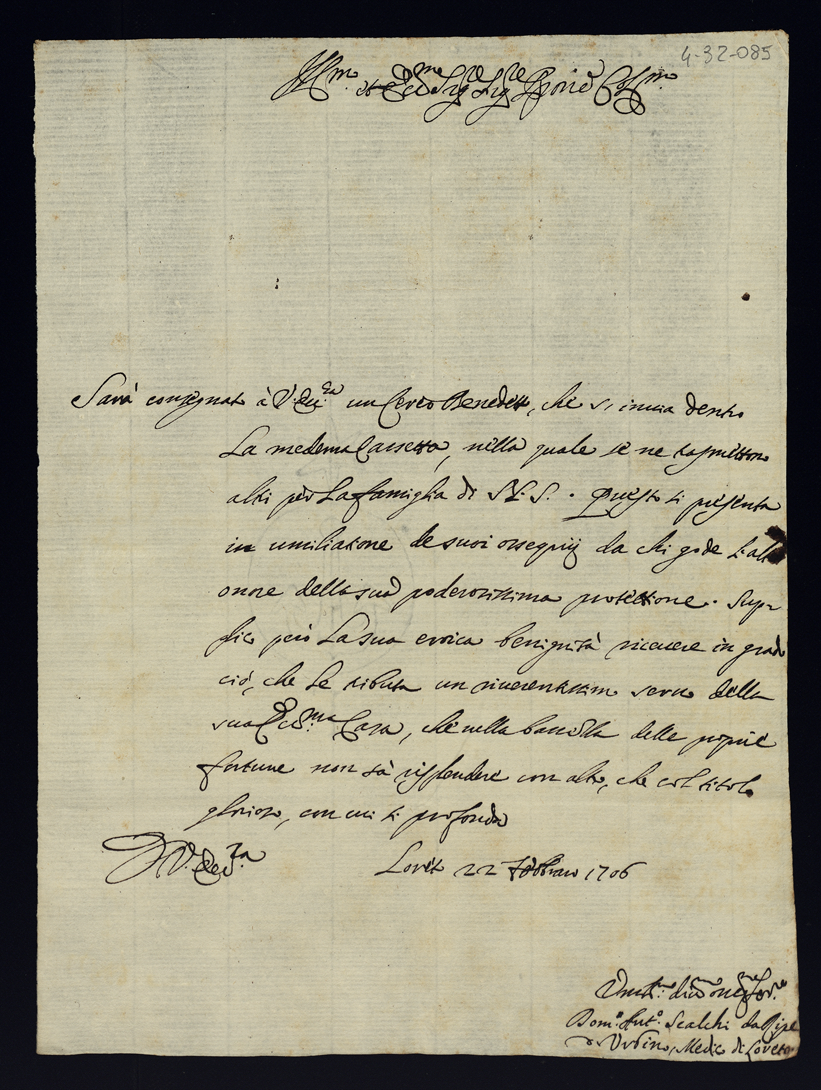 4-32-085
Ill.mo et Ecc.mo Sig.re Sig.re Prone Col.mo
Sarà consegnato à V. Ecc.za un Cereo Benedetto, che si inuia dentro
La medema Cassetta, nella quale se ne trasmettono
altri per La famiglia di N. S. Questo si presenta
in umiliazione de suoi ossequij da chi gode L'alto
onore della sua poderosissima protettione. Sup=
plico però La sua eroica benignità riceuere in grado
ciò, che Le tributa un riuerentissimo seruo della
sua Ecc.ma Casa, che nella bassezza delle proprie
fortune non sà risplendere con altro, che col titolo
glorioso, con cui si profonda
D V. Ecc.za
Loreto 22 Febbraio 1706
Vmil.mo diu.mo oss.mo Ser.re
Dom.o Ant.o Scalchi da Ripe
d'Vrbino, Medico di Loreto